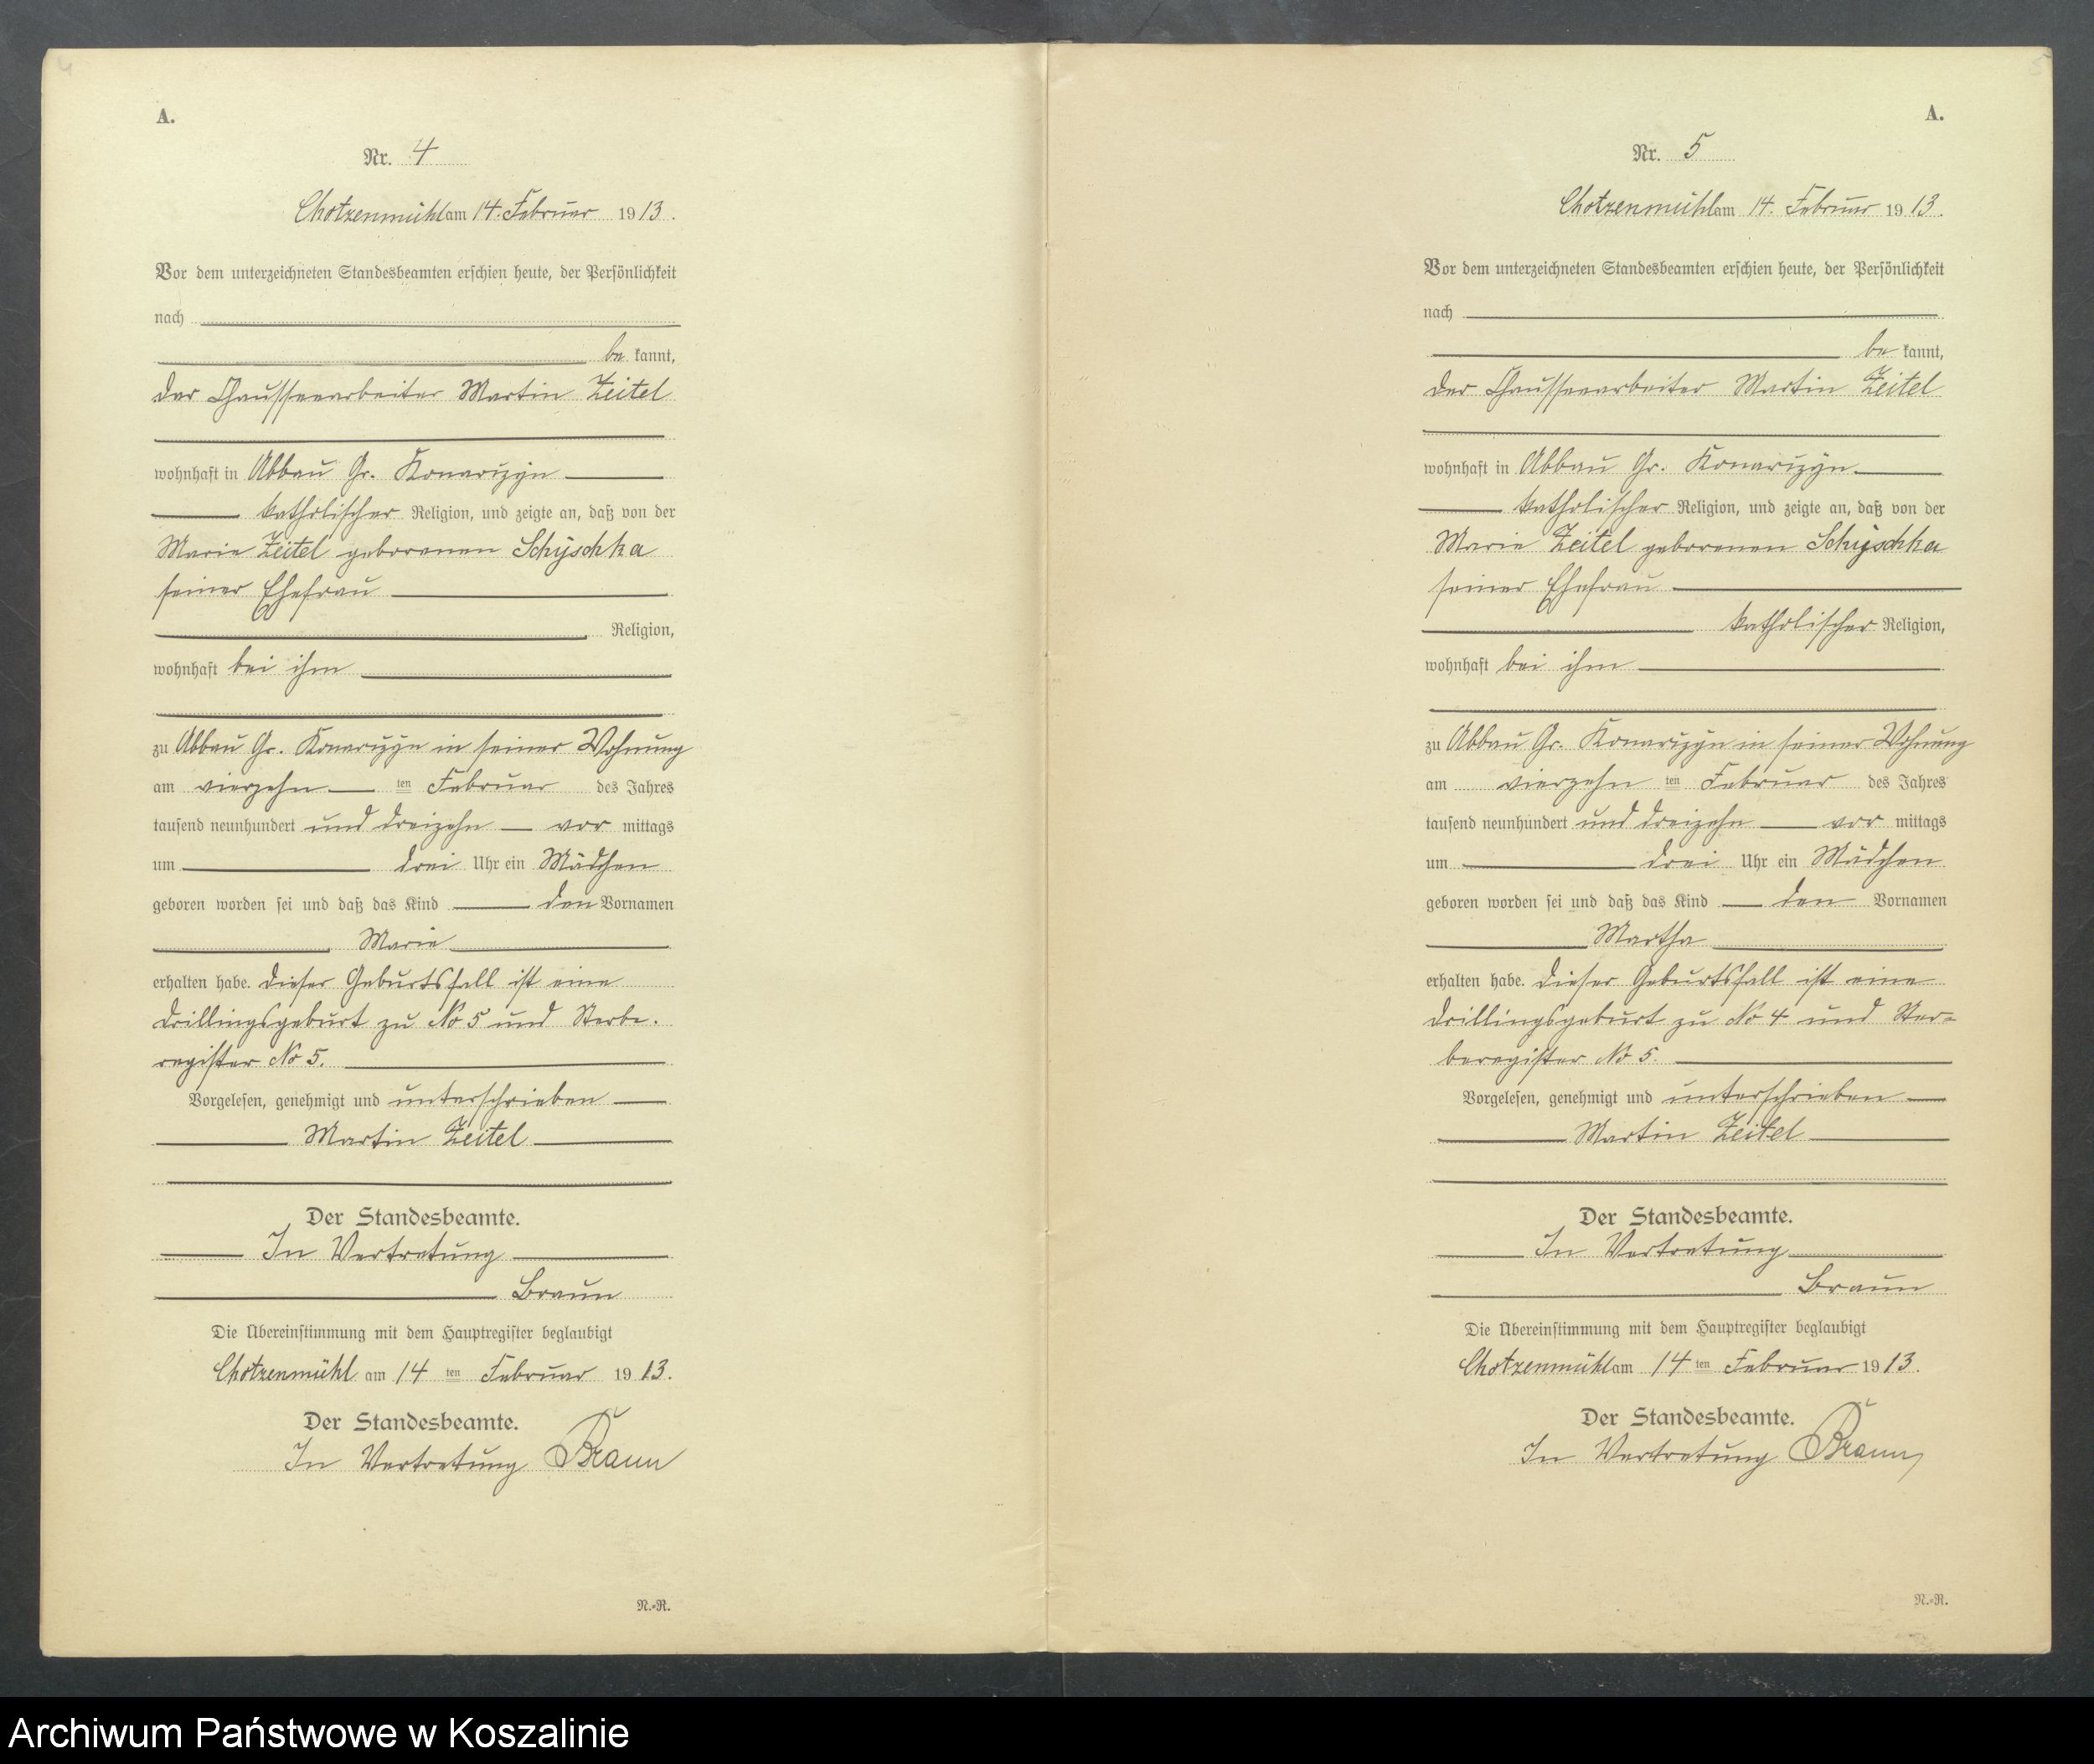 4
A.
Nr. 4
Chotzenmühl am 14. Februar 1913.
Vor dem unterzeichneten Standesbeamten erschien heute, der Persönlichkeit
nach
be kannt,
der Chausseearbeiter Martin Zeitel
wohnhaft in Abbau Gr. Konarczyn
katholischer Religion, und zeigte an, daß von der
Marie Zeitel geborenen Schyschka
seiner Ehefrau
Religion,
wohnhaft bei ihm
zu Abbau Gr. Konarczyn in seiner Wohnung
am vierzehn ten Februar des Jahres
tausend neunhundert und dreizehn vor mittags
um drei Uhr ein Mädchen
geboren worden sei und daß das Kind den Vornamen
Marie
erhalten habe. Dieser Geburtsfall ist eine
Drillingsgeburt zu No 5 und Sterbe-
register No 5.
Vorgelesen, genehmigt und unterschrieben
Martin Zeitel
Der Standesbeamte.
In Vertretung
Braun
Die Übereinstimmung mit dem Hauptregister beglaubigt
Chotzenmühl am 14 ten Februar 1913.
Der Standesbeamte.
In Vertretung Braun
N.-R.
5
A.
Nr. 5
Chotzenmühl am 14. Februar 1913.
Vor dem unterzeichneten Standesbeamten erschien heute, der Persönlichkeit
nach
be kannt,
der Chausseearbeiter Martin Zeitel
wohnhaft in Abbau Gr. Konarczyn
katholischer Religion, und zeigte an, daß von der
Marie Zeitel geborenen Schyschka
seiner Ehefrau
katholischer Religion,
wohnhaft bei ihm
zu Abbau Gr. Konarczyn in seiner Wohnung
am vierzehn ten Februar des Jahres
tausend neunhundert und dreizehn vor mittags
um drei Uhr ein Mädchen
geboren worden sei und daß das Kind den Vornamen
Martha
erhalten habe. Dieser Geburtsfall ist eine
Drillingsgeburt zu No 4 und Ster-
beregister No 5.
Vorgelesen, genehmigt und unterschrieben
Martin Zeitel
Der Standesbeamte.
In Vertretung
Braun
Die Übereinstimmung mit dem Hauptregister beglaubigt
Chotzenmühl am 14 ten Februar 1913.
Der Standesbeamte.
In Vertretung Braun
N.-R.
Archiwum Państwowe w Koszalinie